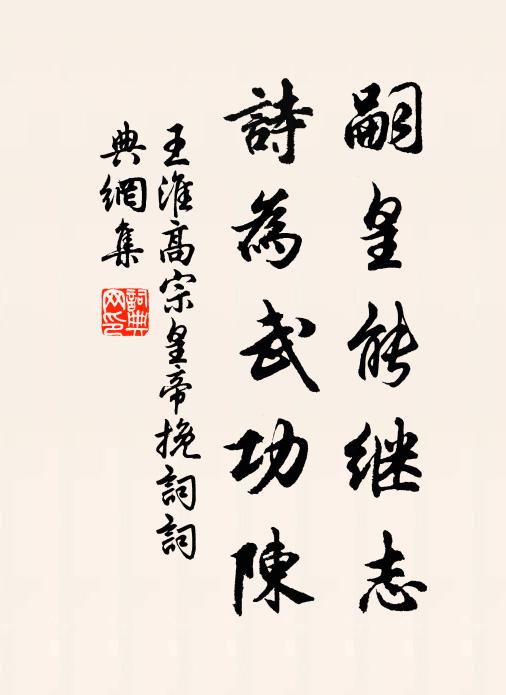 嗣皇能继志
詩為武功陳
王淮高宗皇帝挽詞詞
典網集
詞典網印